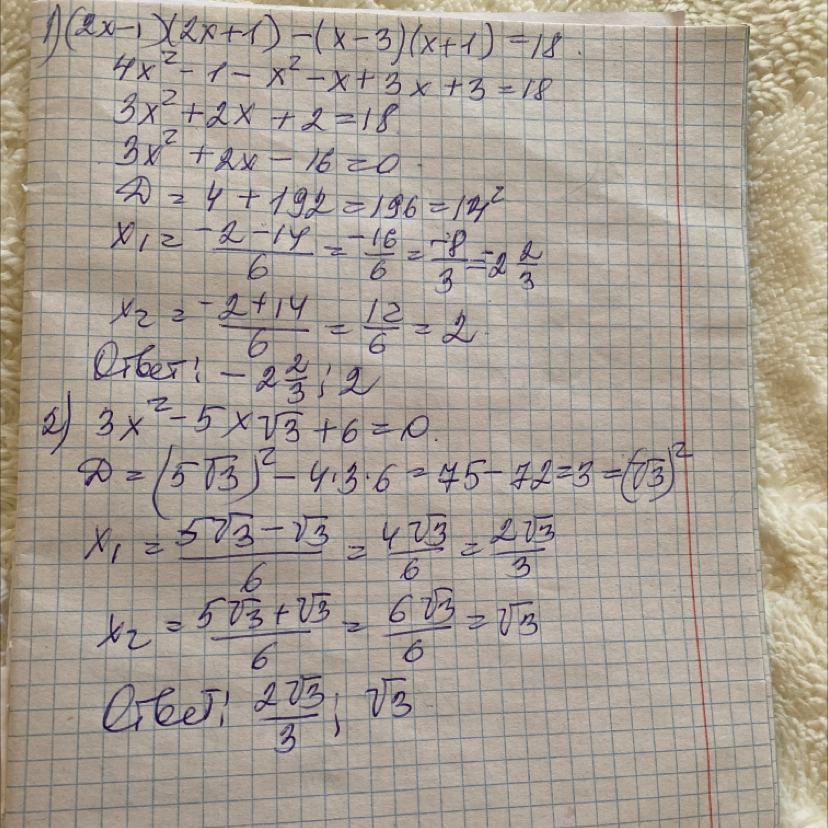 1) (2x-1)(2x+1) - (x-3)(x+1) = 18.
4x² - 1 - x² - x + 3x + 3 = 18
3x² + 2x + 2 = 18
3x² + 2x - 16 = 0.
D = 4 + 192 = 196 = 14²
x₁ = (-2-14)/6 = -16/6 = -8/3 = -2 2/3
x₂ = (-2+14)/6 = 12/6 = 2.
Ответ: -2 2/3; 2
2) 3x² - 5x√3 + 6 = 0.
D = (5√3)² - 4·3·6 = 75 - 72 = 3 = (√3)²
x₁ = (5√3 - √3)/6 = 4√3/6 = 2√3/3
x₂ = (5√3 + √3)/6 = 6√3/6 = √3
Ответ: 2√3/3; √3